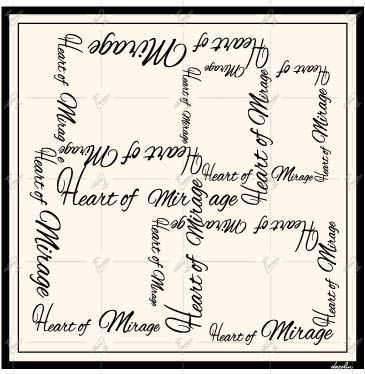 Heart of Mirage
Heart of Mirage
Heart of Mirage
Heart of Mirage
Heart of Mirage
Heart of Mirage
Heart of Mirage
Heart of Mirage
Heart of Mirage
Heart of Mirage
Heart of Mirage
Heart of Mirage
Heart of Mirage
Heart of Mirage
Heart of Mirage
Heart of Mirage
Heart of Mirage